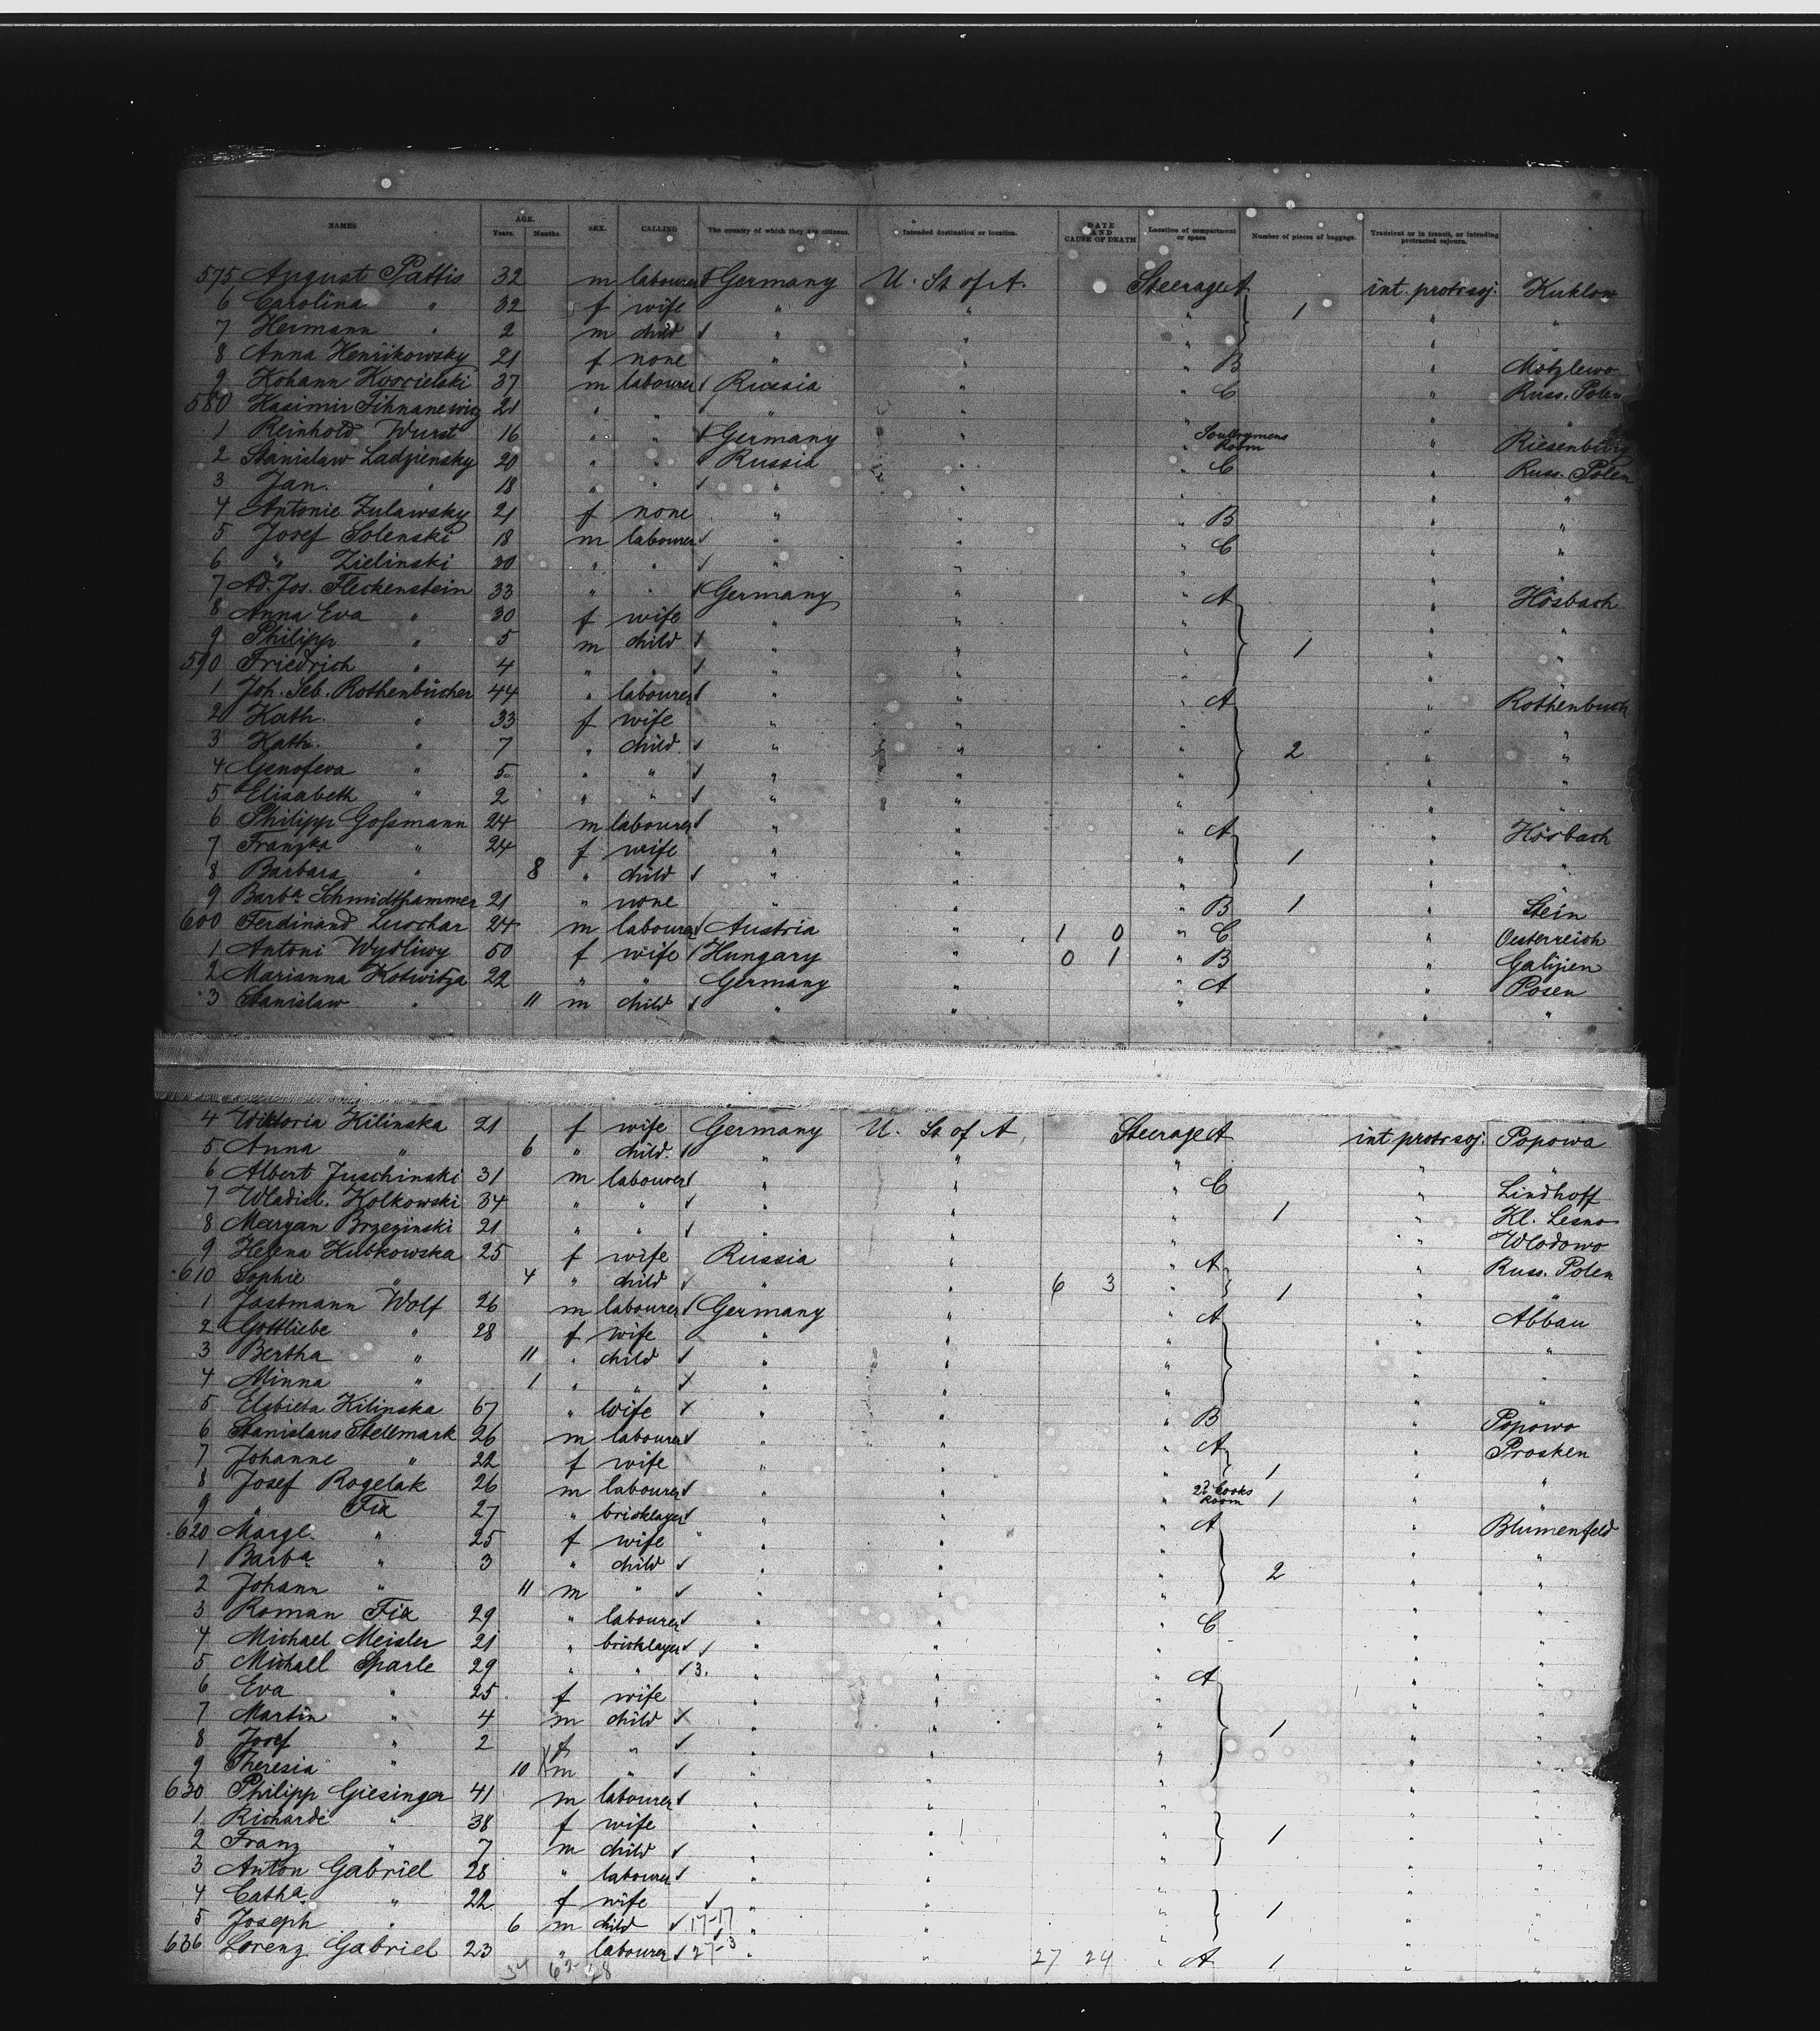 NAMES AGE. Years. Months. SEX. CALLING The country of which they are citizens. Intended destination or location. DATE AND CAUSE OF DEATH Location of compartment or space Number of pieces of baggage. Transient or in transit, or intending protracted sojourn.
575 August Pattis 32 m labourer Germany U. St of A. Steerage A int. protr soj. Kuklow
6 Carolina " 32 f wife " " " 1 "
7 Hermann " 2 m child " " " " "
8 Anna Henrikowsky 21 f none " " " B " Motzlewo
9 Kohann Koscielski 37 m labourer Russia " " C " Russ. Polen
580 Kasimir 21 " " " " " " "
1 Reinhold Wurst 16 " " Germany " " Room " Riesenburg
2 Stanislaw Ladziensky 20 " " Russia " " C " Russ. Polen
3 Jan. " 18 " " " " " " "
4 Antonie Zulawsky 21 f none " " " B " "
5 Josef Solenski 18 m labourer " " " C " "
6 " Zielinski 30 " " " " " " "
7 Ad. Jos. Fleckenstein 33 " " Germany " " A " Hösbach
8 Anna Eva " 30 f wife " " " " "
9 Philipp " 5 m child " " " 1 " "
590 Friedrich " 4 " " " " " " "
1 Joh. Seb. Rothenbücher 44 " labourer " " " A " Rothenbuch
2 Kath. " 33 f wife " " " " "
3 Kath. " 7 " child " " " 2 " "
4 Genofeva " 5 " " " " " " "
5 Elisabeth " 2 " " " " " " "
6 Philipp Goſsmann 24 m labourer " " " A " Hösbach
7 Franzka " 24 f wife " " " 1 " "
8 Barbara " 8 " child " " " " "
9 Barba Schmidthammer 21 " none " " " B 1 " Stein
600 Ferdinand Luschar 24 m labourer Austria " 1 0 " C " Oesterreich
1 Antoni Wydliwy 50 f wife Hungary " 0 1 " B " Galizien
2 Marianna Kotwitza 22 " " Germany " " A " Posen
3 Stanislaw " 11 m child " " " " "
4 Wiktoria Kilinska 21 f wife Germany U. St of A. Steerage A int protr soj. Popowa
5 Anna " 6 " child. " " " " "
6 Albert Juschinski 31 m labourer " " " C " Lindhoff
7 Wladisl. Kolkowski 34 " " " " 1 " Kl. Lesno
8 Maryan Brzezinski 21 " " " " " Wlodowo
9 Helena Kubkowska 25 f wife Russia " " A " Russ. Polen
610 Sophie " 4 " child " " 6 3 " 1 " "
1 Jastmann Wolf 26 m labourer Germany " " A " Abbau
2 Gottliebe " 28 f wife " " " " "
3 Bertha " 11 " child " " " " "
4 Minna " 1 " " " " " " "
5 Elsbieta Kilinska 67 " wife " " " B " Popowo
6 Stanislaus Stellmark 26 m labourer " " " A " Prosken
7 Johanne " 22 f wife " " 1 " "
8 Josef Rogelak 26 m labourer " " " 2d Cooks Room 1 " "
9 " Fix 27 " bricklayer " " " A " Blumenfeld
620 Margl. " 25 f wife " " " " "
1 Barba " 3 " child " " " 2 " "
2 Johann " 11 m " " " " " "
3 Roman Fix 29 " labourer " " " C " "
4 Michael Meisler 21 " bricklayer " " " " "
5 Michall Sparle 29 " " 3. " " " A " "
6 Eva " 25 f wife " " " " "
7 Martin " 4 m child " " " 1 " "
8 Josef " 2 f " " " " " "
9 Theresia " 10 m " " " " " "
630 Philipp Giesinger 41 m labourer " " " " "
1 Richarde " 38 f wife " " " 1 " "
2 Franz " 7 m child " " " " "
3 Anton Gabriel 28 " labourer " " " " "
4 Catha. " 22 f wife " " " 1 " "
5 Joseph " 6 m child 17-17 " " " " "
636 Lorenz Gabriel 23 " labourer 27-3 " " 27 24 " A 1 " "
34 62 28